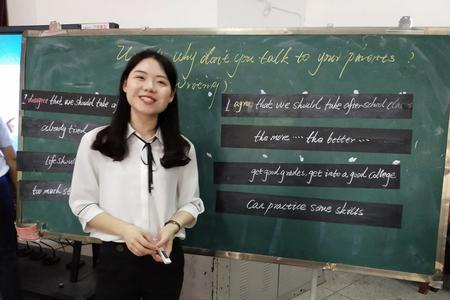 why don't you talk to your parents ?
Writing)
I disagree that we should take a
already tired
life shou
too much st
I agree that we should take after-school classes
the more .... the better ...
get good grades, get into a good college
Can practice some skills